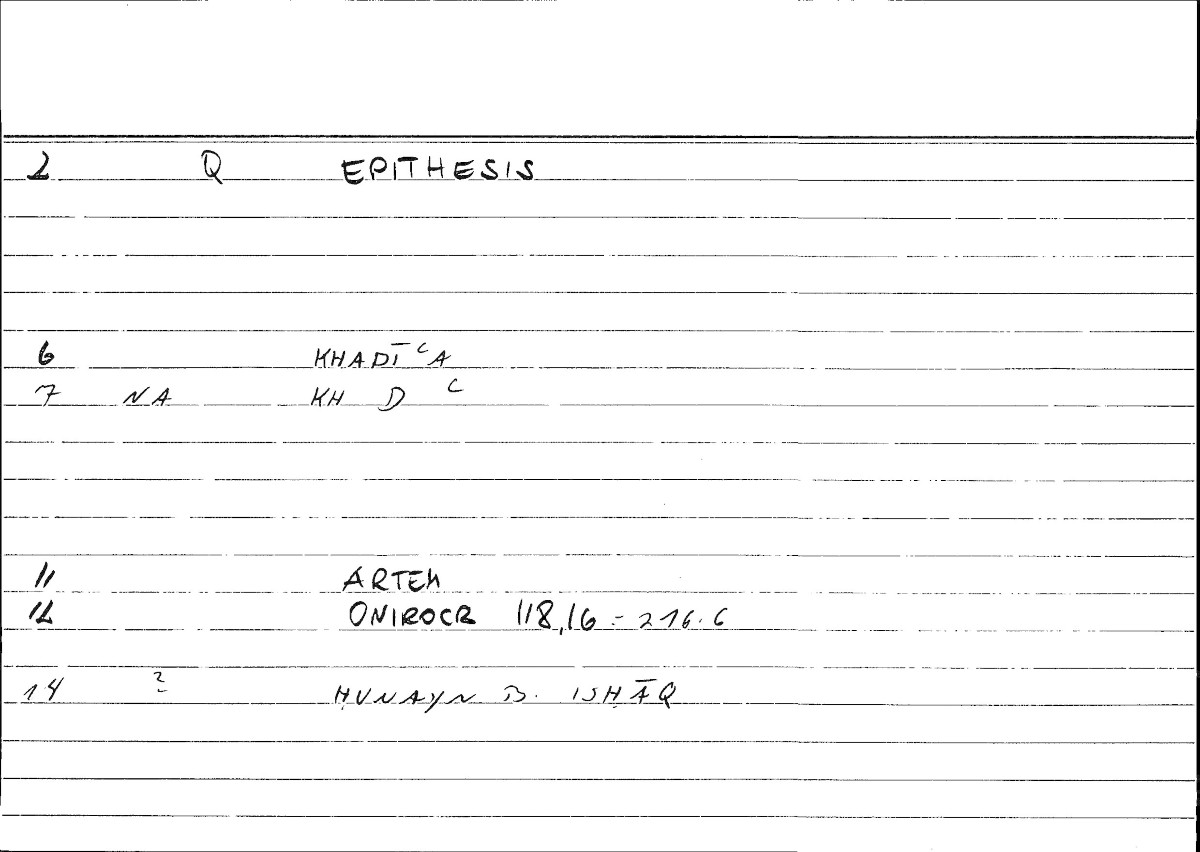 2 Q EPITHESIS
6 KHADĪ ͨ A
7 NA KH D ͨ
11 ARTEM
12 ONIROCR 118,16 - 216.6
14 2 ḤUNAYN B. ISḤĀQ